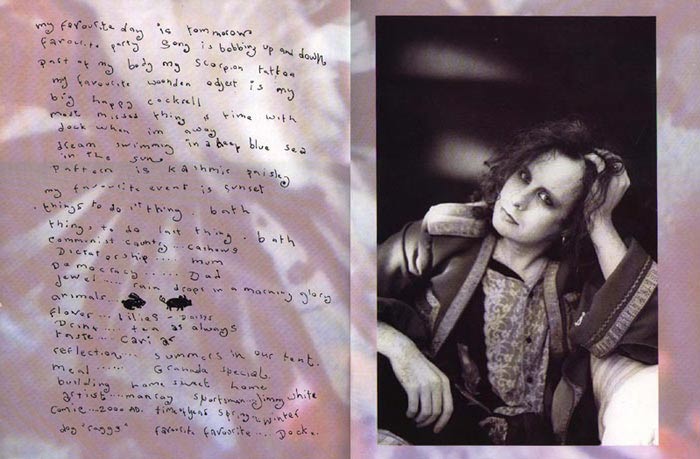 my favourite day is tommorow
favourite party song is bobbing up and down
part of my body my scorpion tattoo
my favourite wooden object is my
big happy cockrell
most missed thing is time with
dock when im away
dream swimming in a deep blue sea
in the sun
pattern is Kashmir paisley
my favourite event is sunset
things to do 1st thing . bath
things to do last thing . bath
communist country ... cashews
Dictatorship ..... mum
Democracy ...... Dad
jewel .... rain drops in a morning glory
animals ....
flower ... lilies
Drink .... tea as always
taste ... caviar
reflection .... summers in our tent.
meal ..... Granada special.
building home sweet home
artist ... manray sportsman .. Jimmy white
comic ... 2000 AD. time of year spring - winter
dog "raggs" favourite favourite .... Dock..